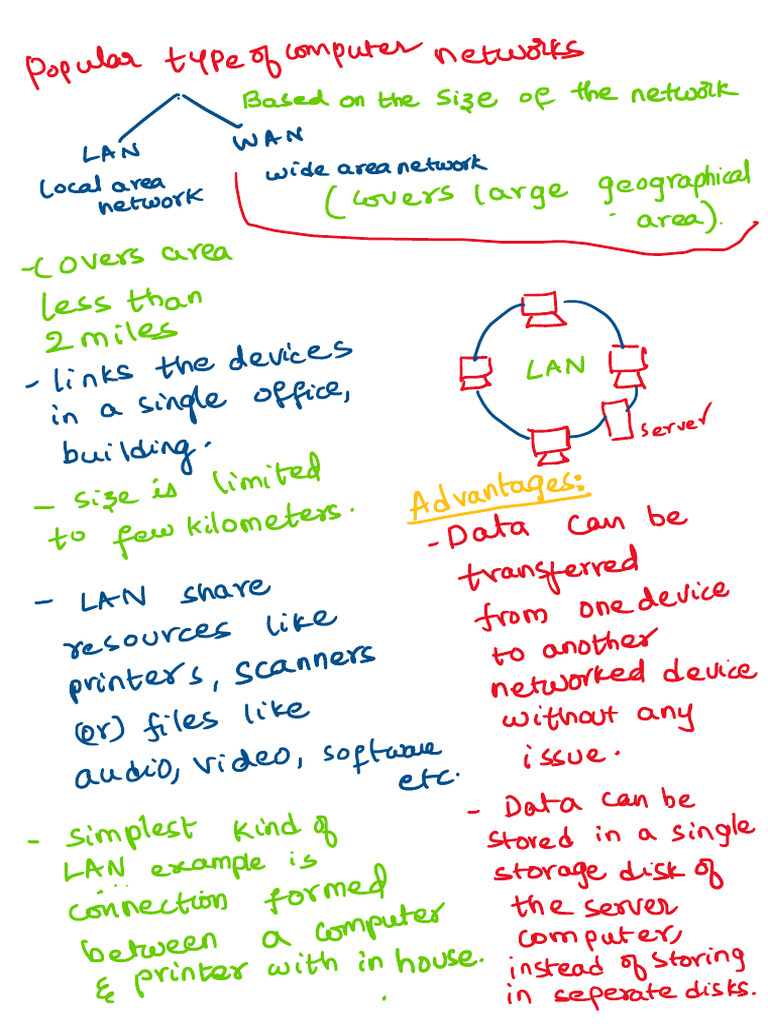 Popular type of computer networks
Based on the size of the network
LAN
Local area
network
WAN
wide area network
(covers large geographical
area).
- covers area
less than
2 miles
- links the devices
in a single office,
building.
- size is limited
to few kilometers.
- LAN share
resources like
printers, scanners
(or) files like
audio, video, software
etc.
- simplest kind of
LAN example is
connection formed
between a computer
& printer with in house.
LAN
server
Advantages:
- Data can be
transferred
from one device
to another
networked device
without any
issue.
- Data can be
stored in a single
storage disk of
the server
computer,
instead of storing
in seperate disks.